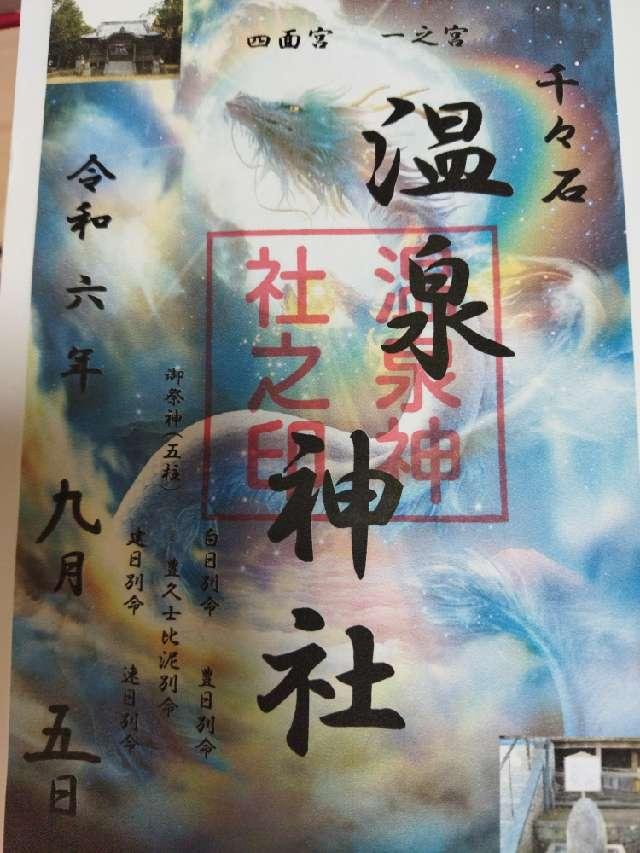 四面宮 一之宮
千々石
温泉神社
温泉神
社之印
御祭神(五柱)
白日別命 豊日別命
豊久士比泥別命
建日別命 速日別命
令和六年 九月 五日